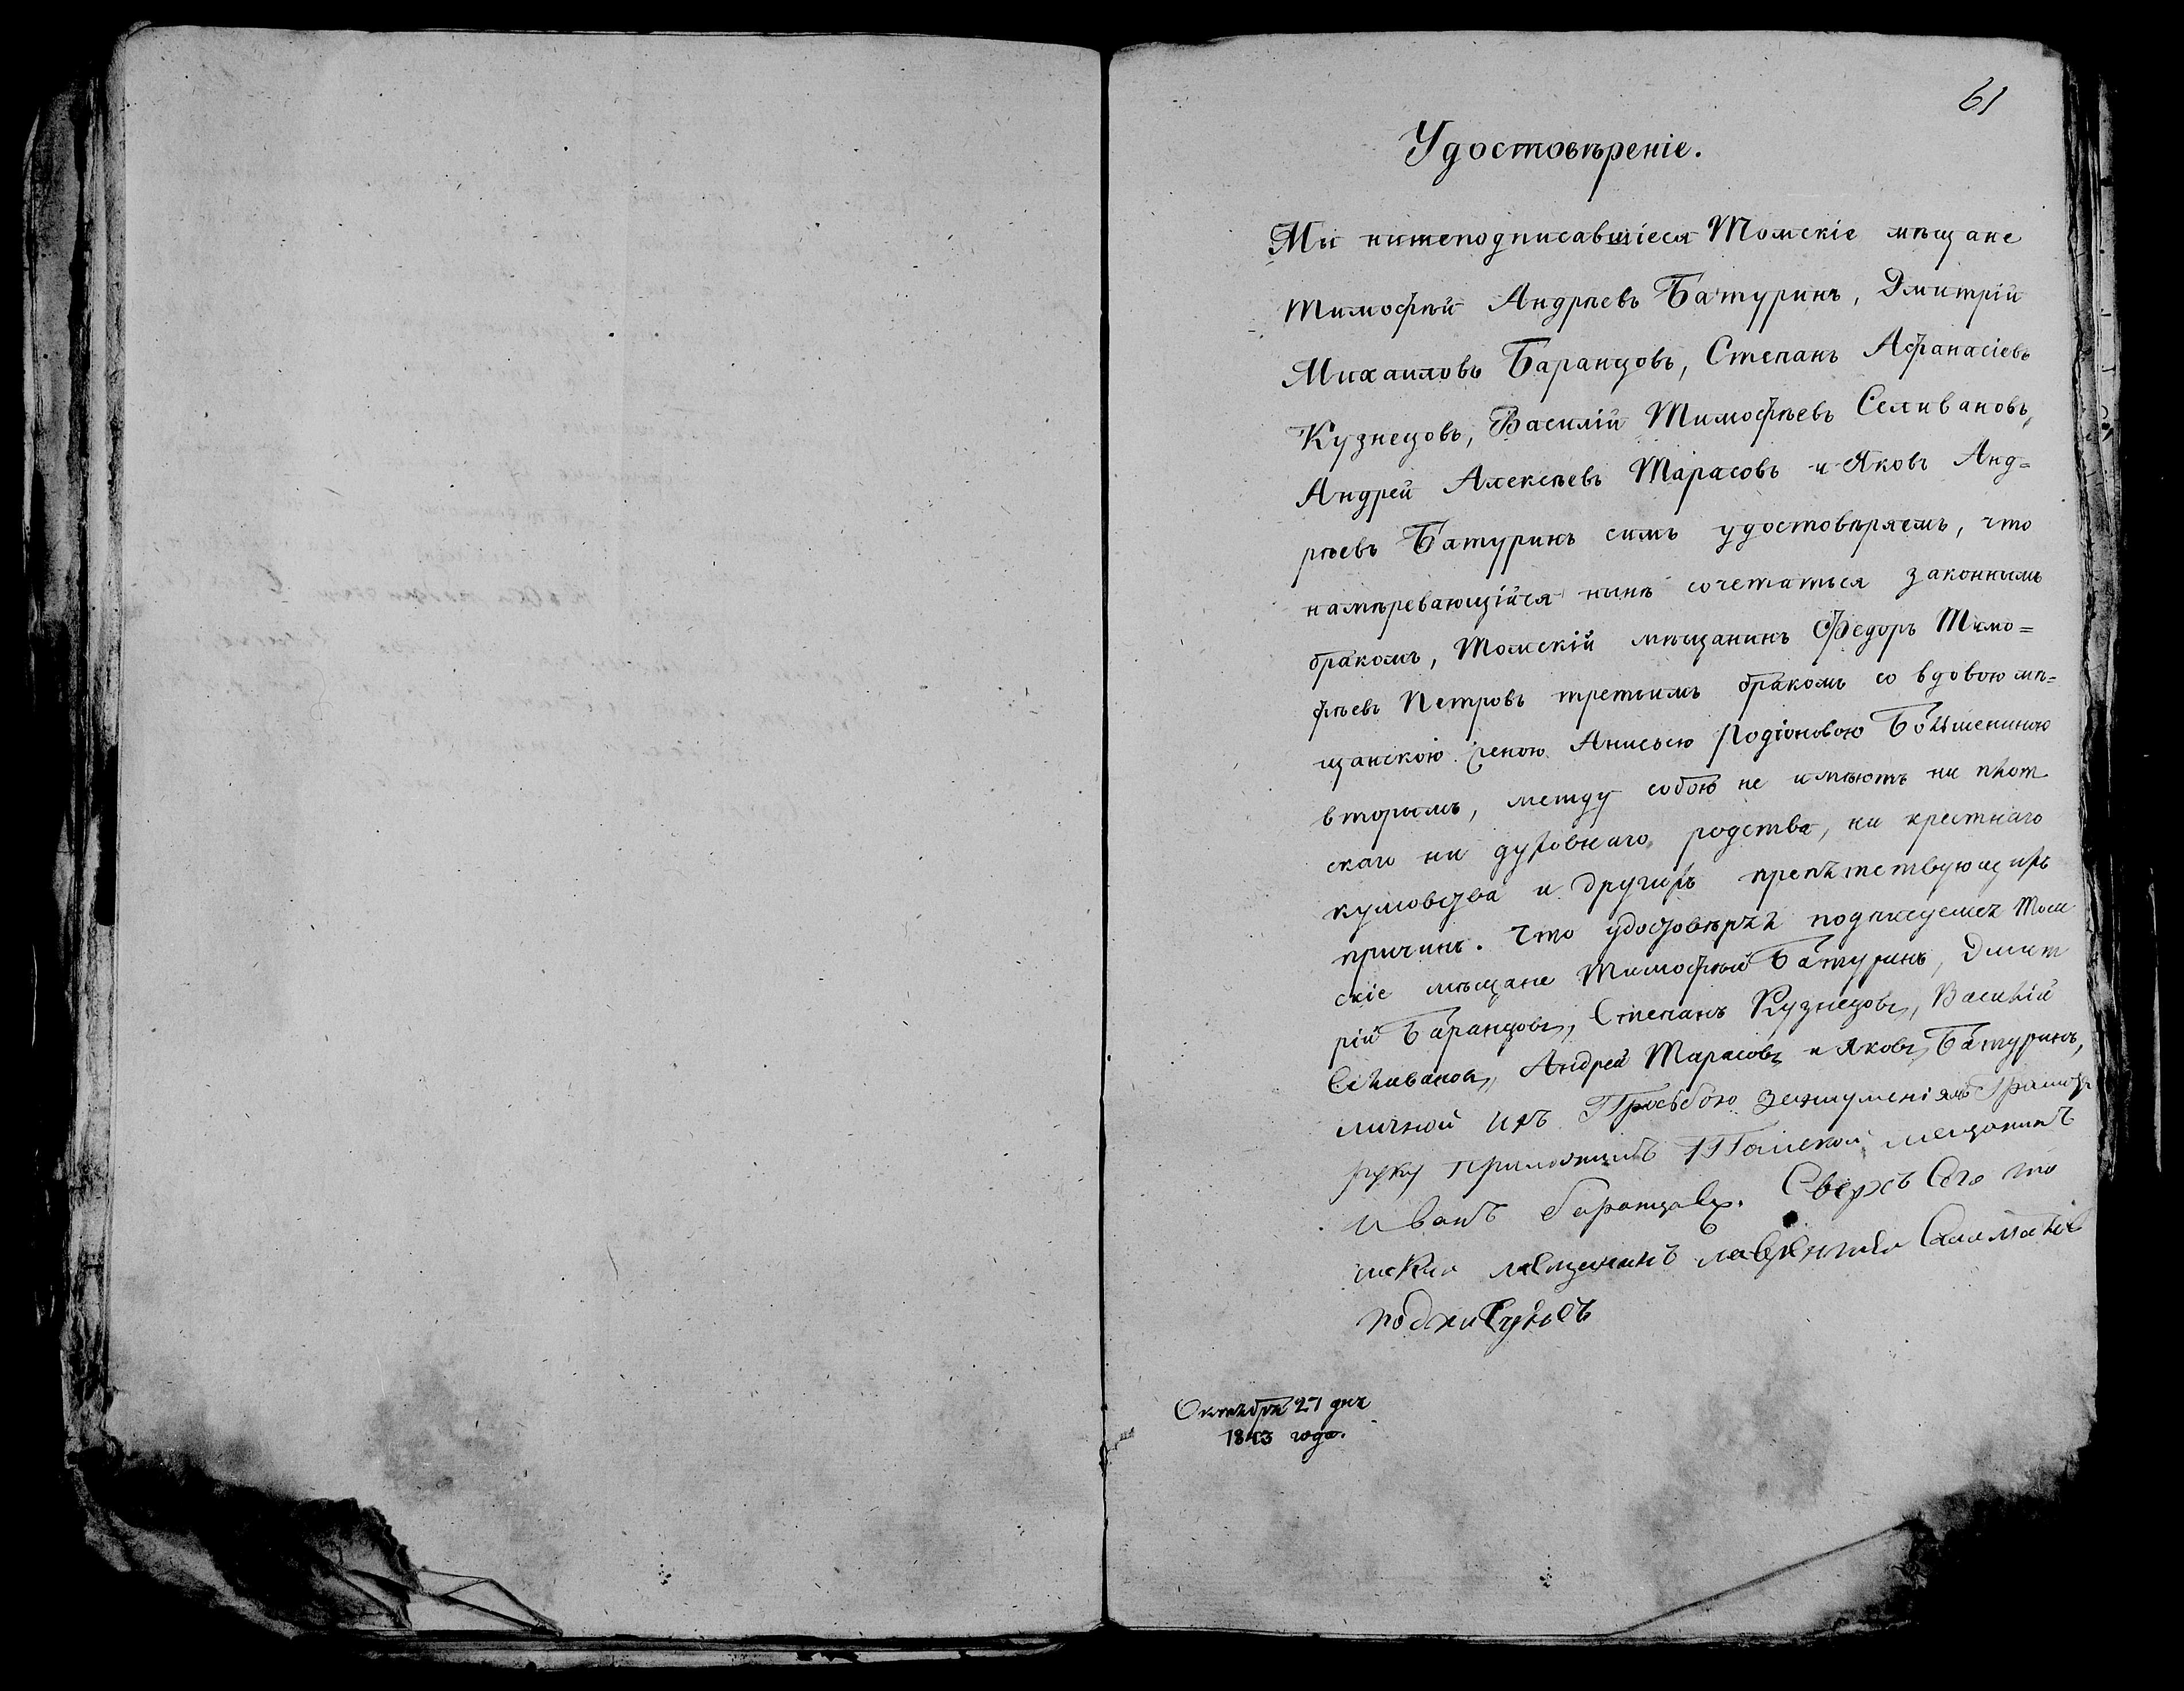 61
Удостовѣреніе.
Мы нижеподписавшіеся Томскіе мѣщане
Тимофѣй Андрѣевъ Батуринъ, Дмитрій
Михаиловъ Баранцовъ, Степанъ Афанасіевъ
Кузнецовъ, Василій Тимофѣевъ Селивановъ,
Андрей Алексѣевъ Тарасовъ и Яковъ Анд=
рѣевъ Батуринъ симъ удостовѣряемъ, что
намѣревающійся нынѣ сочетаться законнымъ
бракомъ, Томскій мѣщанинъ Федоръ Тимо=
фѣевъ Петровъ третьимъ бракомъ со вдовою мѣ=
щанскою женою Анисьею Родіоновою
вторымъ, между собою не имѣютъ ни плот
скаго ни духовнаго родства, ни крестнаго
кумовства и другихъ препятствующихъ
причинъ. Что удостовѣряя подписуемся Том
скіе мѣщане Тимофѣй Батуринъ, Дмит
рій Баранцовъ, Степанъ Кузнецовъ, Василій
Селивановъ, Андрей Тарасовъ и Яковъ Батуринъ,
личной ихъ Прозьбою
руку приложилъ Томской мещанинъ
Иванъ баранцовъ. Сверхъ Сего то
мскій мещенинъ лаврентей

Октября 27 дня
1843 года.